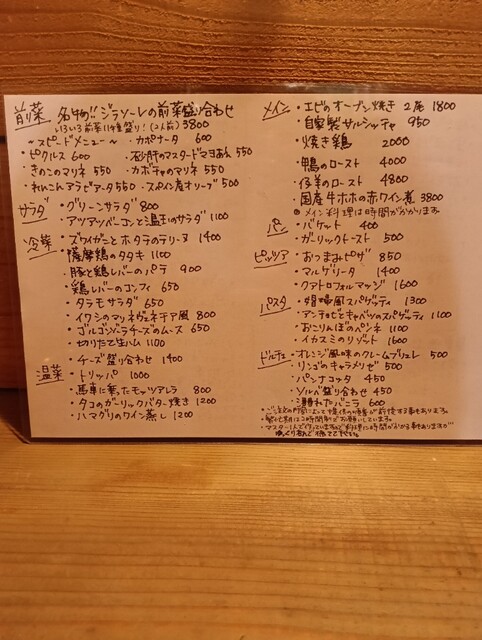 前菜 名物!! ジラソーレの前菜盛り合わせ
いろいろ前菜11種盛り!(2人前) 3800
～スピードメニュー～ ・カポナータ 600
・ピクルス 600 ・砂肝のマスタードマヨあえ 550
・きのこのマリネ 550 ・カボチャのマリネ 550
・れんこんアラビアータ 550 ・スペイン産オリーブ 500
サラダ ・グリーンサラダ 800
・アツアツベーコンと温玉のサラダ 1100
冷菜 ・ズワイガニとホタテのテリーヌ 1400
・薩摩鶏のタタキ 1100
・豚と鶏レバーのパテ 900
・鶏レバーのコンフィ 650
・タラモサラダ 650
・イワシのマリネヴェネチア風 800
・ゴルゴンゾーラチーズのムース 650
・切りたて生ハム 1100
・チーズ盛り合わせ 1400
温菜 ・トリッパ 1000
・馬車に乗ったモッツアレラ 800
・タコのガーリックバター焼き 1200
・ハマグリのワイン蒸し 1200
メイン ・エビのオーブン焼き 2尾 1800
・自家製サルシッチャ 950
・焼き鶏 2000
・鴨のロースト 4000
・仔羊のロースト 4800
・国産牛ホホの赤ワイン煮 3800
※メイン料理は時間がかかります。
パン ・バゲット 400
・ガーリックトースト 500
ピッツァ ・おつまみピザ 850
・マルゲリータ 1400
・クアトロフォルマッジ 1600
パスタ ・娼婦風スパゲティ 1300
・アンチョビとキャベツのスパゲティ 1100
・おこりんぼのペンネ 1100
・イカスミのリゾット 1600
ドルチェ ・オレンジ風味のクレームブリュレ 500
・リンゴのキャラメリゼ 500
・パンナコッタ 450
・ソルベ盛り合わせ 450
・溺れたバニラ 600
・ご注文の内容によって提供の順番が前後する事もあります。
・繁忙期は2時間制でお願いしています。
・マスター1人で作っていますので料理に時間がかかる事もありますが
ゆっくり飲んで待ってて下さい。